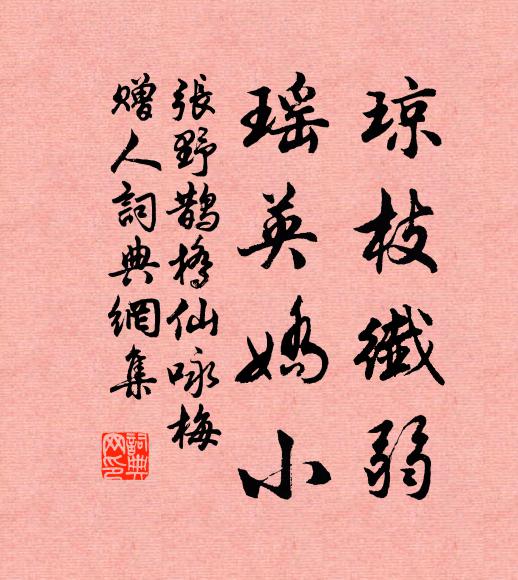 琼枝纖弱
瑶英嬌小
張野鵲橋仙咏梅
贈人詞典網集
詞典網印